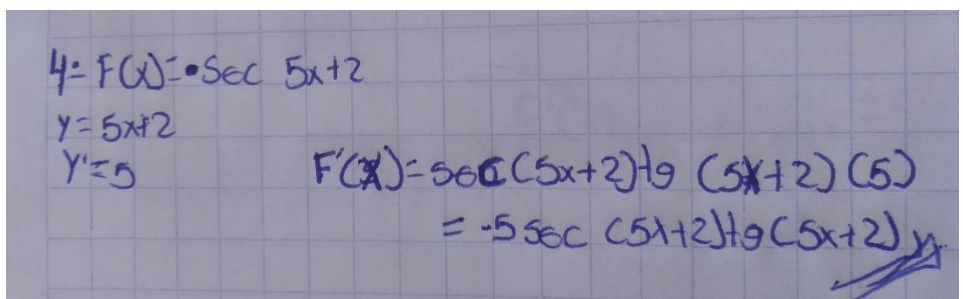 4= F(x)= • Sec 5x+2
y = 5x+2
Y' = 5
F'(X)= sec (5x+2) tg (5x+2) (5)
= -5 sec (5x+2) tg (5x+2)